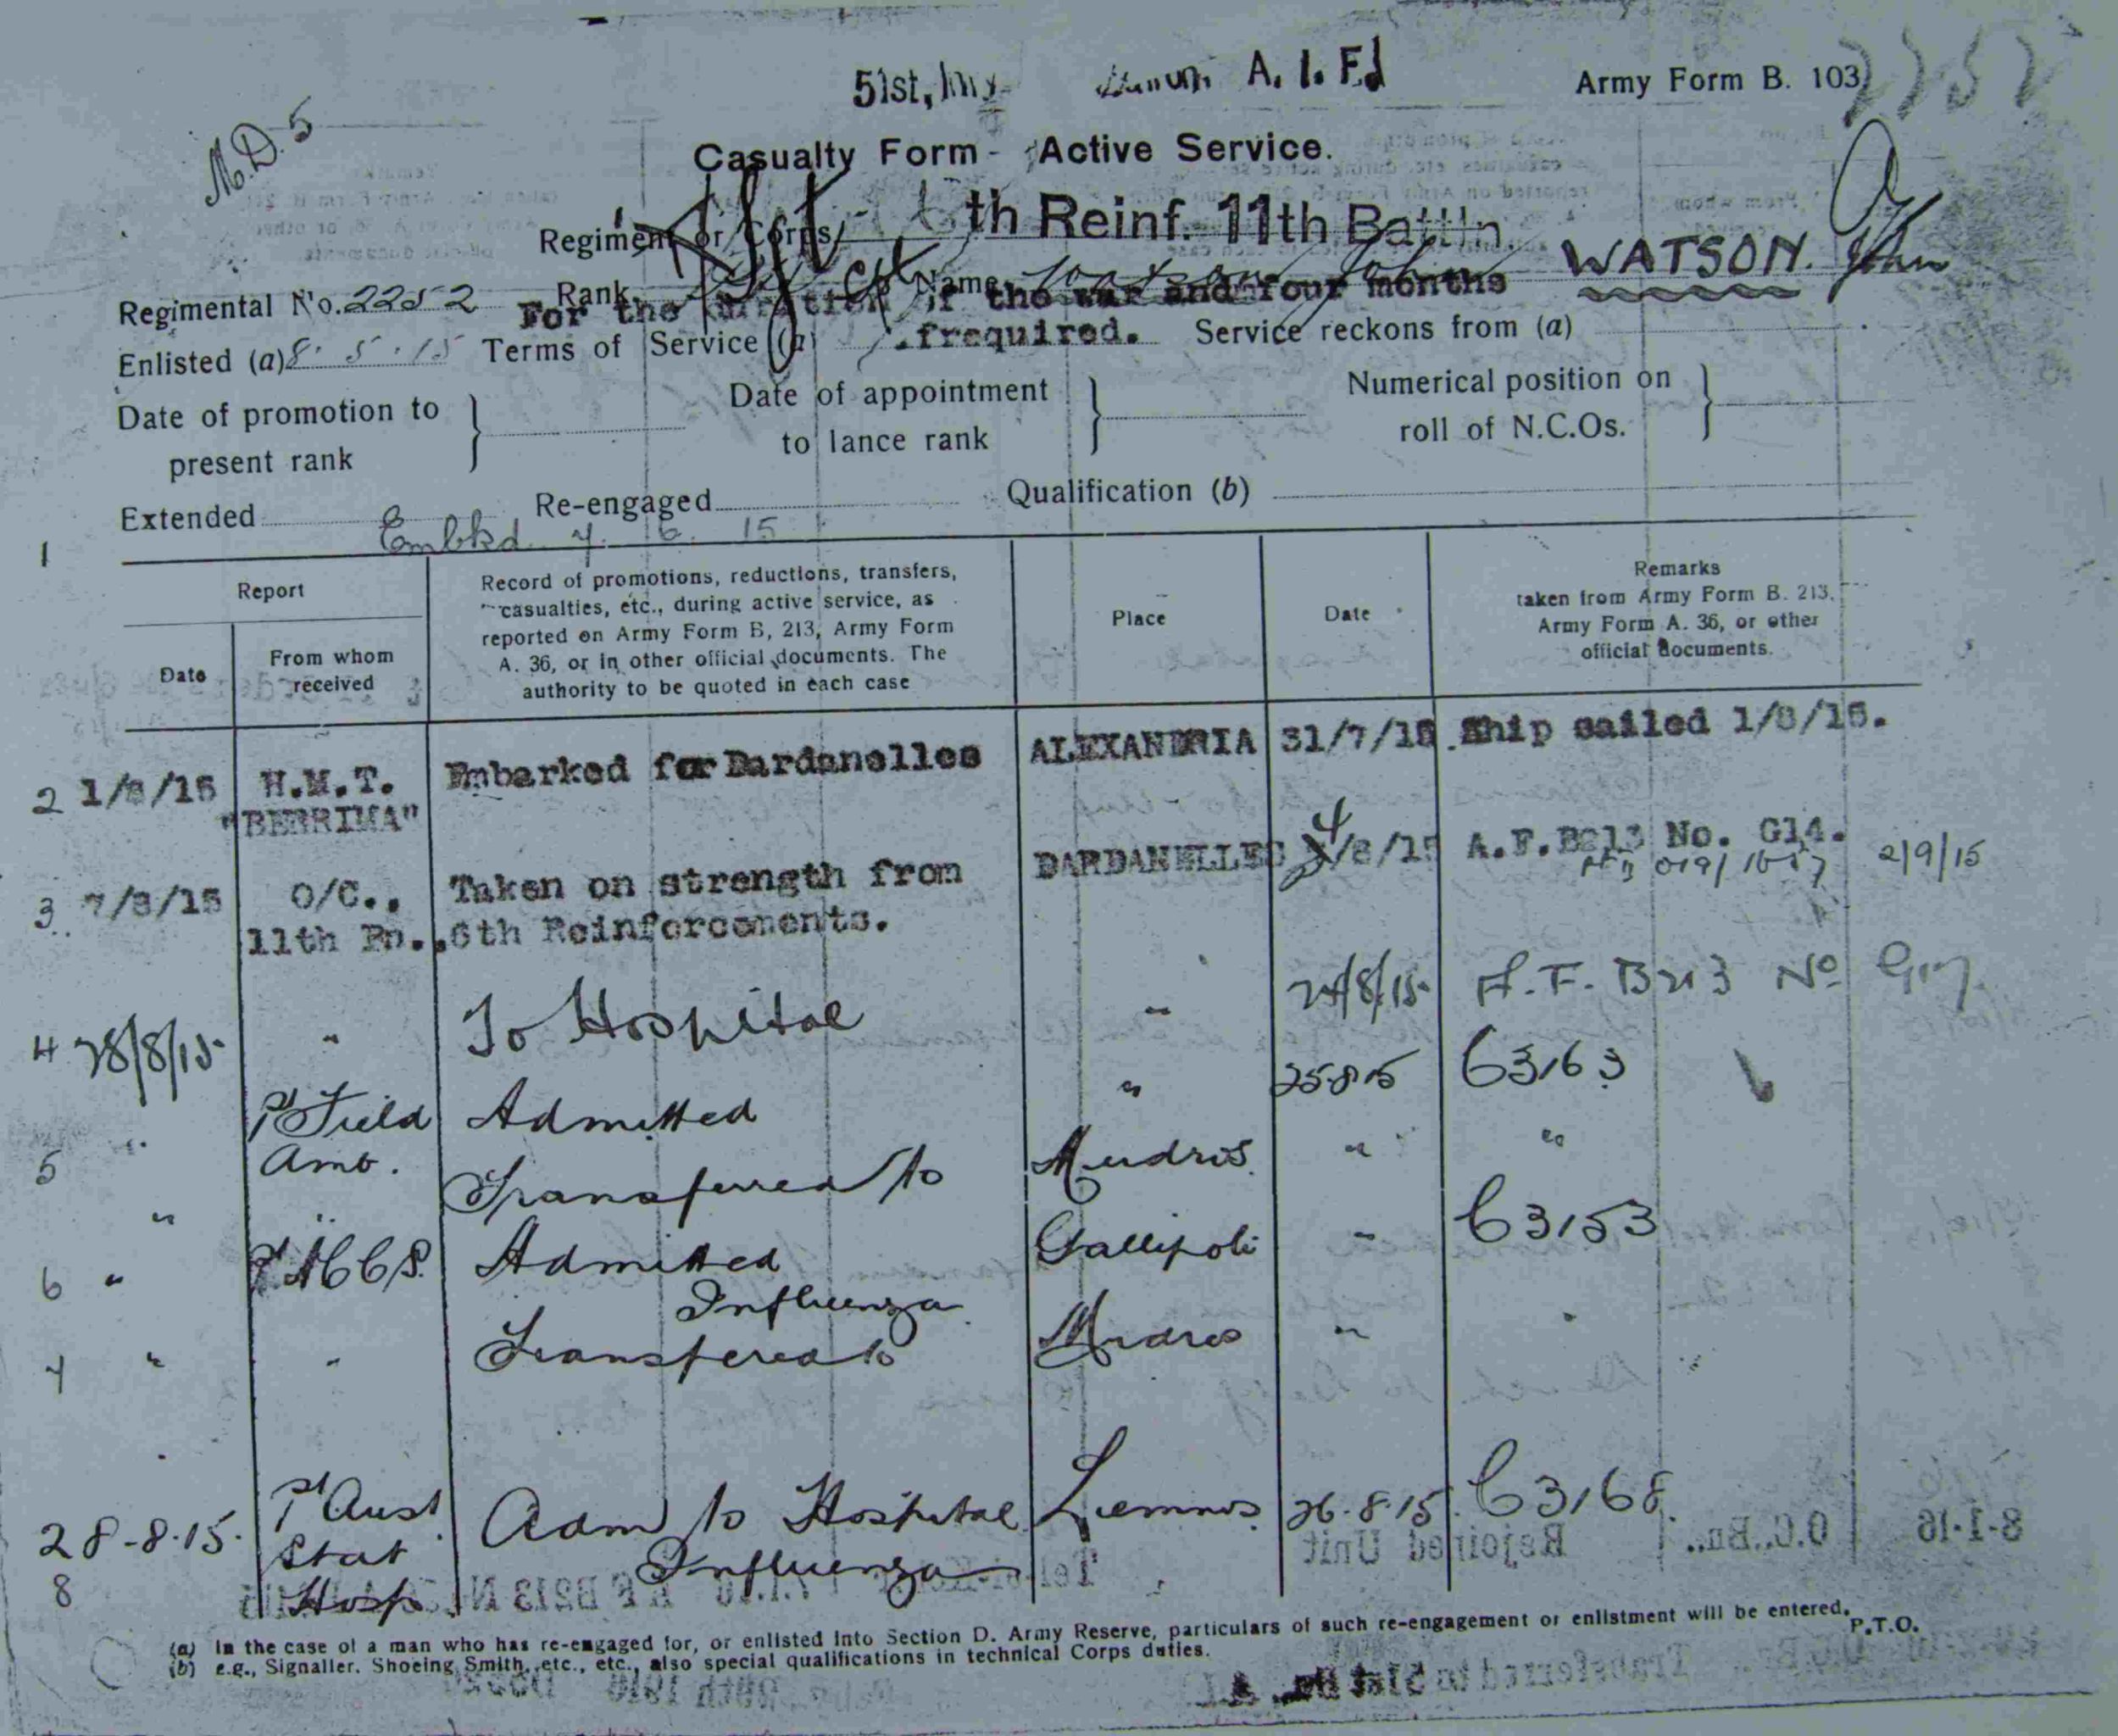 51st, A. I. F.
Army Form B. 103
M.D. 5
Casualty Form - Active Service.
Regiment or Corps th Reinf. 11th Battln.
WATSON. John
Regimental No. 2252 Rank Cpl Name Watson, John
For the duration of the war and four months
Enlisted (a) 8.5.15 Terms of Service (a) frequired. Service reckons from (a)
Date of promotion to present rank } Date of appointment to lance rank } Numerical position on roll of N.C.Os. }
Extended Re-engaged Qualification (b)
Embkd 7. 6. 15
1
Report
Date
From whom received
Record of promotions, reductions, transfers,
casualties, etc., during active service, as
reported on Army Form B, 213, Army Form
A. 36, or in other official documents. The
authority to be quoted in each case
Place
Date
Remarks
taken from Army Form B. 213,
Army Form A. 36, or other
official documents.
2 1/8/15 H.M.T. "BERRIMA" Embarked for Dardanelles ALEXANDRIA 31/7/15 Ship sailed 1/8/15.
3 7/8/15 O/C., 11th Bn. Taken on strength from DARDANELLES 4/8/15 A.F.B213 No. G14. 2/9/15
6th Reinforcements.
4 28/8/15 " To Hospital " 24/8/15 A.F. B213 No
" 1st Field Amb. Admitted " 25.8.15 C3163
5 " " Transferred to Mudros " "
6 " 1st ACCS. Admitted Gallipoli " C3153
Influenza
7 " " Transfered to Mudros " "
28-8-15. 1st Aust Stat Hosp. Adm to Hospital Lemnos 26.8.15 C3168.
8 Influenza
(a) In the case of a man who has re-engaged for, or enlisted into Section D. Army Reserve, particulars of such re-engagement or enlistment will be entered.
(b) e.g., Signaller. Shoeing Smith, etc., etc., also special qualifications in technical Corps duties.
P.T.O.